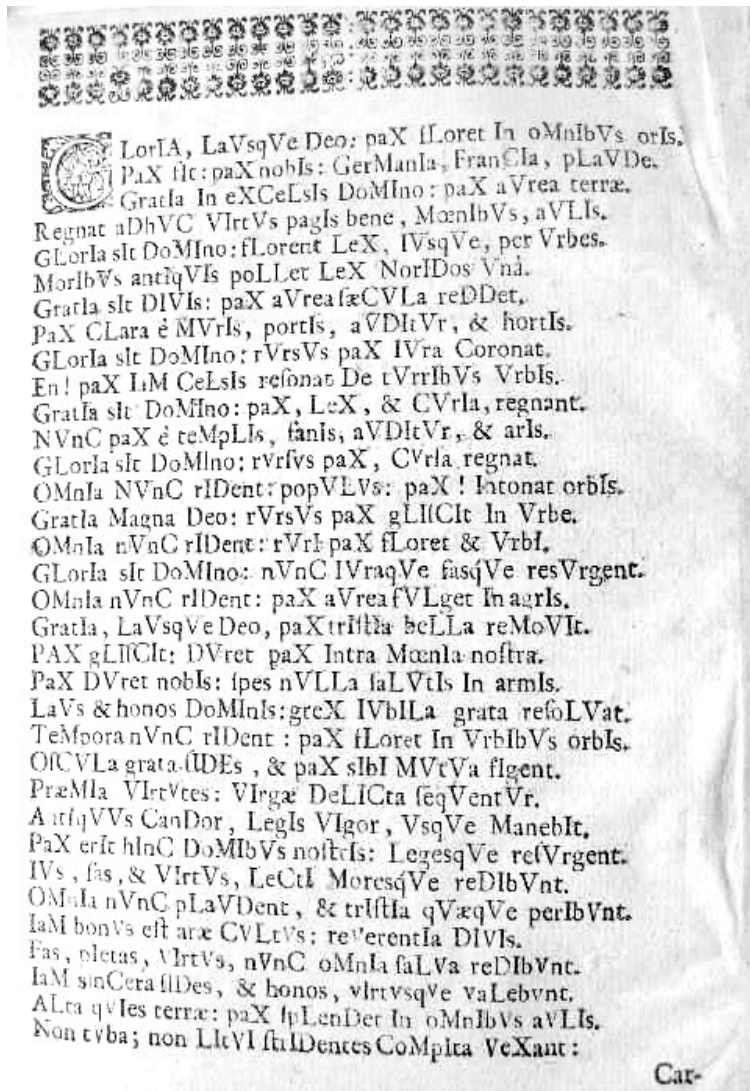 GLorIA, LaVsqVe Deo: paX fLoret In oMnIbVs orIs.
PaX sIt: paX nobIs: GerManIa, FranCIa, pLaVDe.
GratIa In eXCeLsIs DoMIno: paX aVrea terræ.
Regnat aDhVC VIrtVs pagIs bene, MœnIbVs, aVLIs.
GLorIa sIt DoMIno: fLorent LeX, IVsqVe, per Vrbes.
MorIbVs antIqVIs poLLet LeX NorIDos Vnâ.
GratIa sIt DIVIs: paX aVrea ſæCVLa reDDet.
PaX CLara è MVrIs, portIs, aVDItVr, & hortIs.
GLorIa sIt DoMIno: rVrsVs paX IVra Coronat.
En! paX IaM CeLsIs reſonat De tVrrIbVs VrbIs.
GratIa sIt DoMIno: paX, LeX, & CVrIa, regnant.
NVnC paX è teMpLIs, fanis, aVDItVr, & arIs.
GLorIa sIt DoMIno: rVrſvs paX, CVrIa regnat.
OMnIa NVnC rIDent: popVLVs: paX! Intonat orbIs.
GratIa Magna Deo: rVrsVs paX gLIſCIt In Vrbe.
OMnIa nVnC rIDent: rVrI paX fLoret & VrbI.
GLorIa sIt DoMIno: nVnC IVraqVe fasq́Ve resVrgent.
OMnIa nVnC rIDent: paX aVrea fVLget In agrIs.
GratIa, LaVsqVe Deo, paX trIſtIa beLLa reMoVIt.
PAX gLIſCIt: DVret paX Intra MœnIa noſtra.
PaX DVret nobIs: ſpes nVLLa ſaLVtIs In armIs.
LaVs & honos DoMInIs: greX IVbILa grata reſoLVat.
TeMpora nVnC rIDent: paX fLoret In VrbIbVs orbIs.
OſCVLa grata fIDEs, & paX sIbI MVtVa fIgent.
PræMIa VIrtVtes: VIrgæ DeLICta ſeqVentVr.
AntIqVVs CanDor, LegIs VIgor, VsqVe ManebIt.
PaX erIt hInC DoMIbVs noſtrIs: LegesqVe reſVrgent.
IVs, fas, & VIrtVs, LeCtI Moresq́Ve reDIbVnt.
OMnIa nVnC pLaVDent, & trIſtIa qVæqVe perIbVnt.
IaM bonVs eſt aræ CVLtVs: reVerentIa DIVIs.
Fas, pIetas, VIrtVs, nVnC oMnIa ſaLVa reDIbVnt.
IaM sInCera fIDes, & honos, vIrtvsqVe vaLebvnt.
ALta qVIes terræ: paX ſpLenDet In oMnIbVs aVLIs.
Non tvba; non LItVI ſtrIDentes CoMpIta VeXant:
Car-